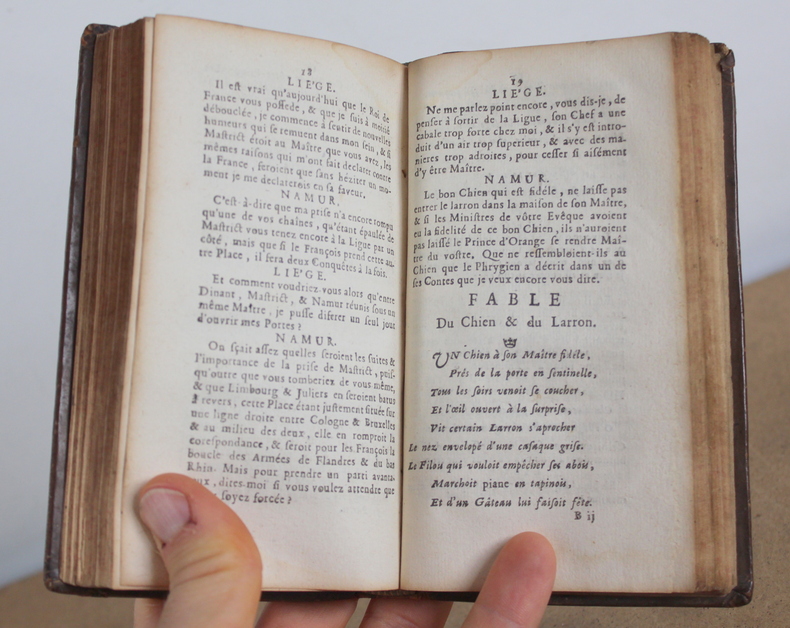 18
LIE'GE.
Il est vrai qu'aujourd'hui que le Roi de
France vous possede, & que je suis à moitié
débouclée, je commence à sentir de nouvelles
humeurs qui se remuent dans mon sein, & si
Mastrict étoit au Maître que vous avez, les
mêmes raisons qui m'ont fait declarer contre
la France, feroient que sans héziter un mo-
ment je me declarerois en sa faveur.
NAMUR.
C'est-à-dire que ma prise n'a encore rompu
qu'une de vos chaînes, qu'étant épaulée de
Mastrict vous tenez encore à la Ligue par un
côté, mais que si le François prend cette au-
tre Place, il fera deux Conquêtes à la fois.
LIE'GE.
Et comment voudriez-vous alors qu'entre
Dinant, Mastrict, & Namur réunis sous un
même Maître, je pusse diferer un seul jour
d'ouvrir mes Portes?
NAMUR.
On sçait assez quelles seroient les suites &
l'importance de la prise de Mastrict, puis-
qu'outre que vous tomberiez de vous même,
& que Limbourg & Juliers en seroient batus
à revers, cette Place étant justement située sur
une ligne droite entre Cologne & Bruxelles
& au milieu des deux, elle en romproit la
corespondance, & seroit pour les François la
boucle des Armées de Flandres & du bas
Rhin. Mais pour prendre un parti avanta-
eux, dites-moi si vous voulez attendre que
soyez forcée?
19
LIE'GE.
Ne me parlez point encore, vous dis-je, de
penser à sortir de la Ligue, son Chef a une
cabale trop forte chez moi, & il s'y est intro-
duit d'un air trop superieur, & avec des ma-
nieres trop adroites, pour cesser si aisément
d'y être Maître.
NAMUR.
Le bon Chien qui est fidéle, ne laisse pas
entrer le larron dans la maison de son Maître,
& si les Ministres de vôtre Evêque avoient
eu la fidelité de ce bon Chien, ils n'auroient
pas laissé le Prince d'Orange se rendre Maî-
tre du vostre. Que ne ressembloient-ils au
Chien que le Phrygien a décrit dans un de
ses Contes que je veux encore vous dire.
FABLE
Du Chien & du Larron.
UN Chien à son Maître fidéle,
Prés de la porte en sentinelle,
Tous les soirs venoit se coucher,
Et l'œil ouvert à la surprise,
Vit certain Larron s'aprocher
Le nez envelopé d'une casaque grise.
Le Filou qui vouloit empêcher ses abois,
Marchoit piane en tapinois,
Et d'un Gâteau lui faisoit fête.
B ij